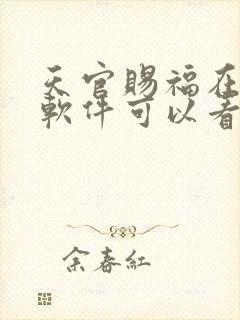 天官賜福在
軟件可以看
余春紅